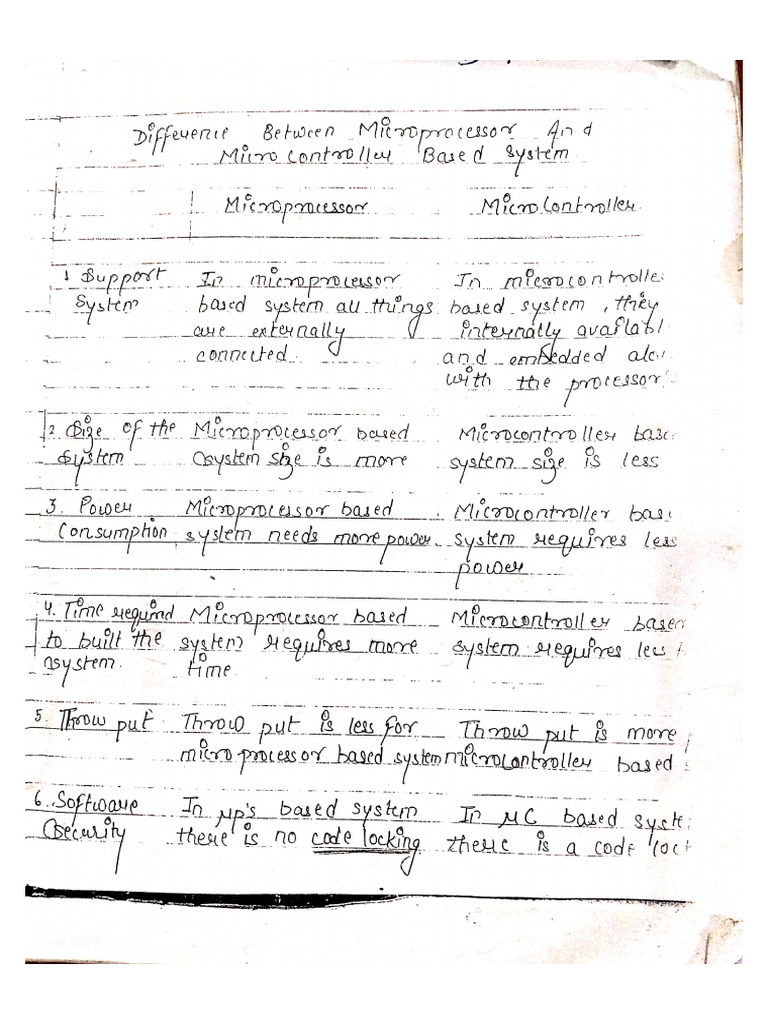 Difference Between Microprocessor And
Microcontroller Based System
Microprocessor Microcontroller
1 Support In microprocessor In microcontrolle
System based system all things based system, they
are externally internally availabl
connected. and embedded alo
with the processor
2. Size of the Microprocessor based Microcontroller base
System system size is more system size is less
3. Power Microprocessor based Microcontroller bas
Consumption system needs more power. system requires less
power
4. Time required Microprocessor based Microcontroller based
to built the system requires more system requires less
system. time
5. Throw put Throw put is less for Throw put is more
microprocessor based system microcontroller based
6. Software In μp's based system In μC based syste
Security there is no code locking there is a code lock